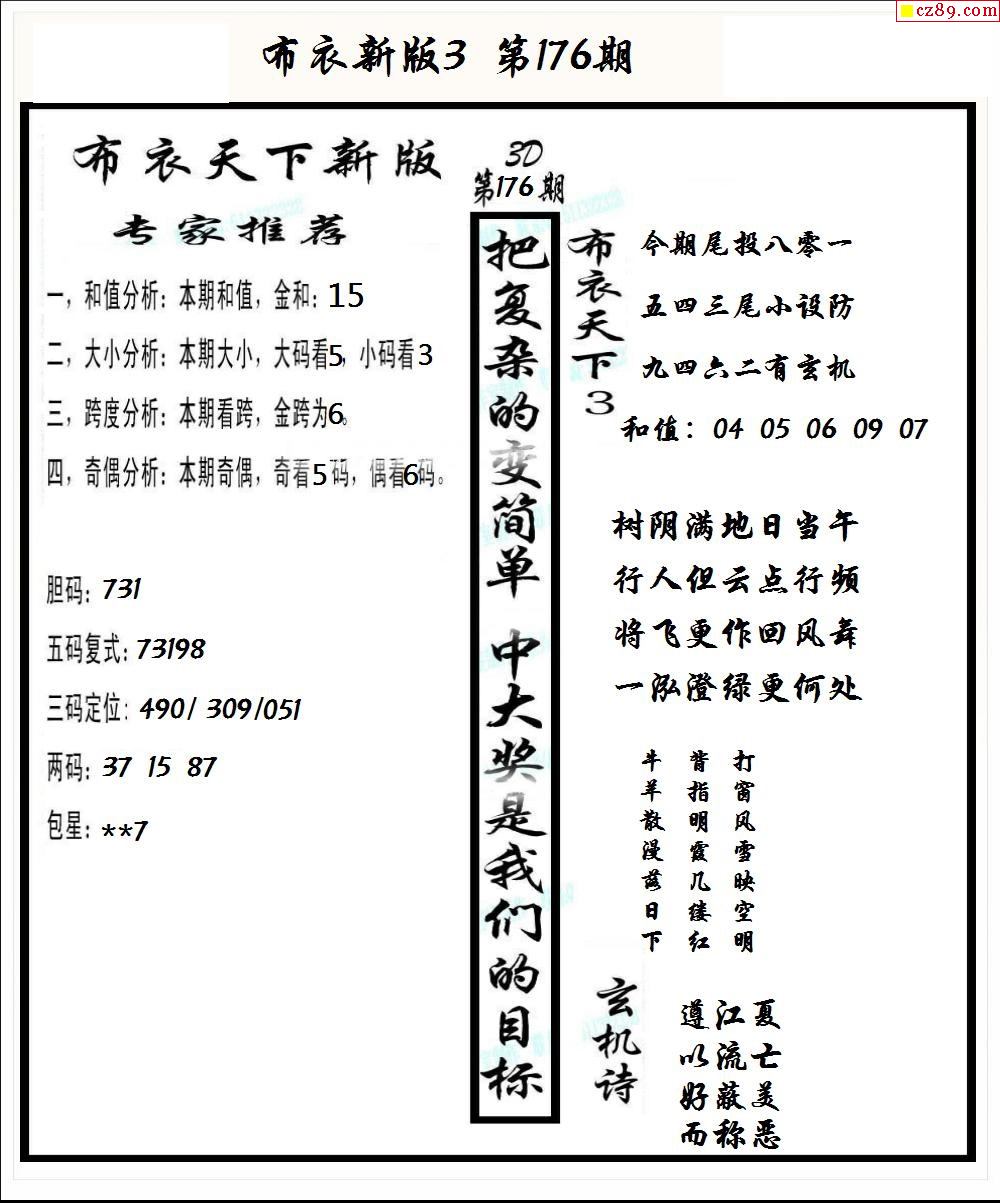 cz89.com
布衣新版3 第176期
布衣天下新版
专家推荐
一，和值分析：本期和值，金和：15
二，大小分析：本期大小，大码看5，小码看3
三，跨度分析：本期看跨，金跨为6。
四，奇偶分析：本期奇偶，奇看5码，偶看6码。
胆码：731
五码复式：73198
三码定位：490/ 309/051
两码：37 15 87
包星：**7
3D
第176期
把复杂的变简单 中大奖是我们的目标
布衣天下3
今期尾投八零一
五四三尾小设防
九四六二有玄机
和值：04 05 06 09 07
树阴满地日当午
行人但云点行频
将飞更作回风舞
一泓澄绿更何处
打窗风雪映空明
背指明霞几缕红
牛羊散漫落日下
玄机诗
遵江夏
以流亡
好蔽美
而称恶